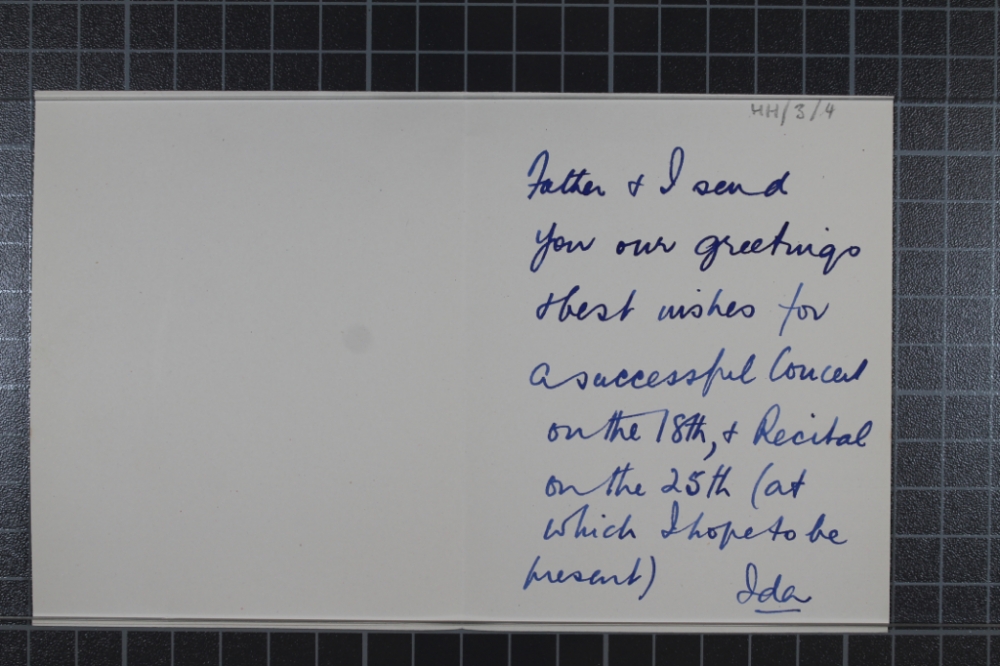 HH/3/4
Father & I send
you our greetings
& best wishes for
a successful Concert
on the 18th, & Recital
on the 25th (at
which I hope to be
present) Ida